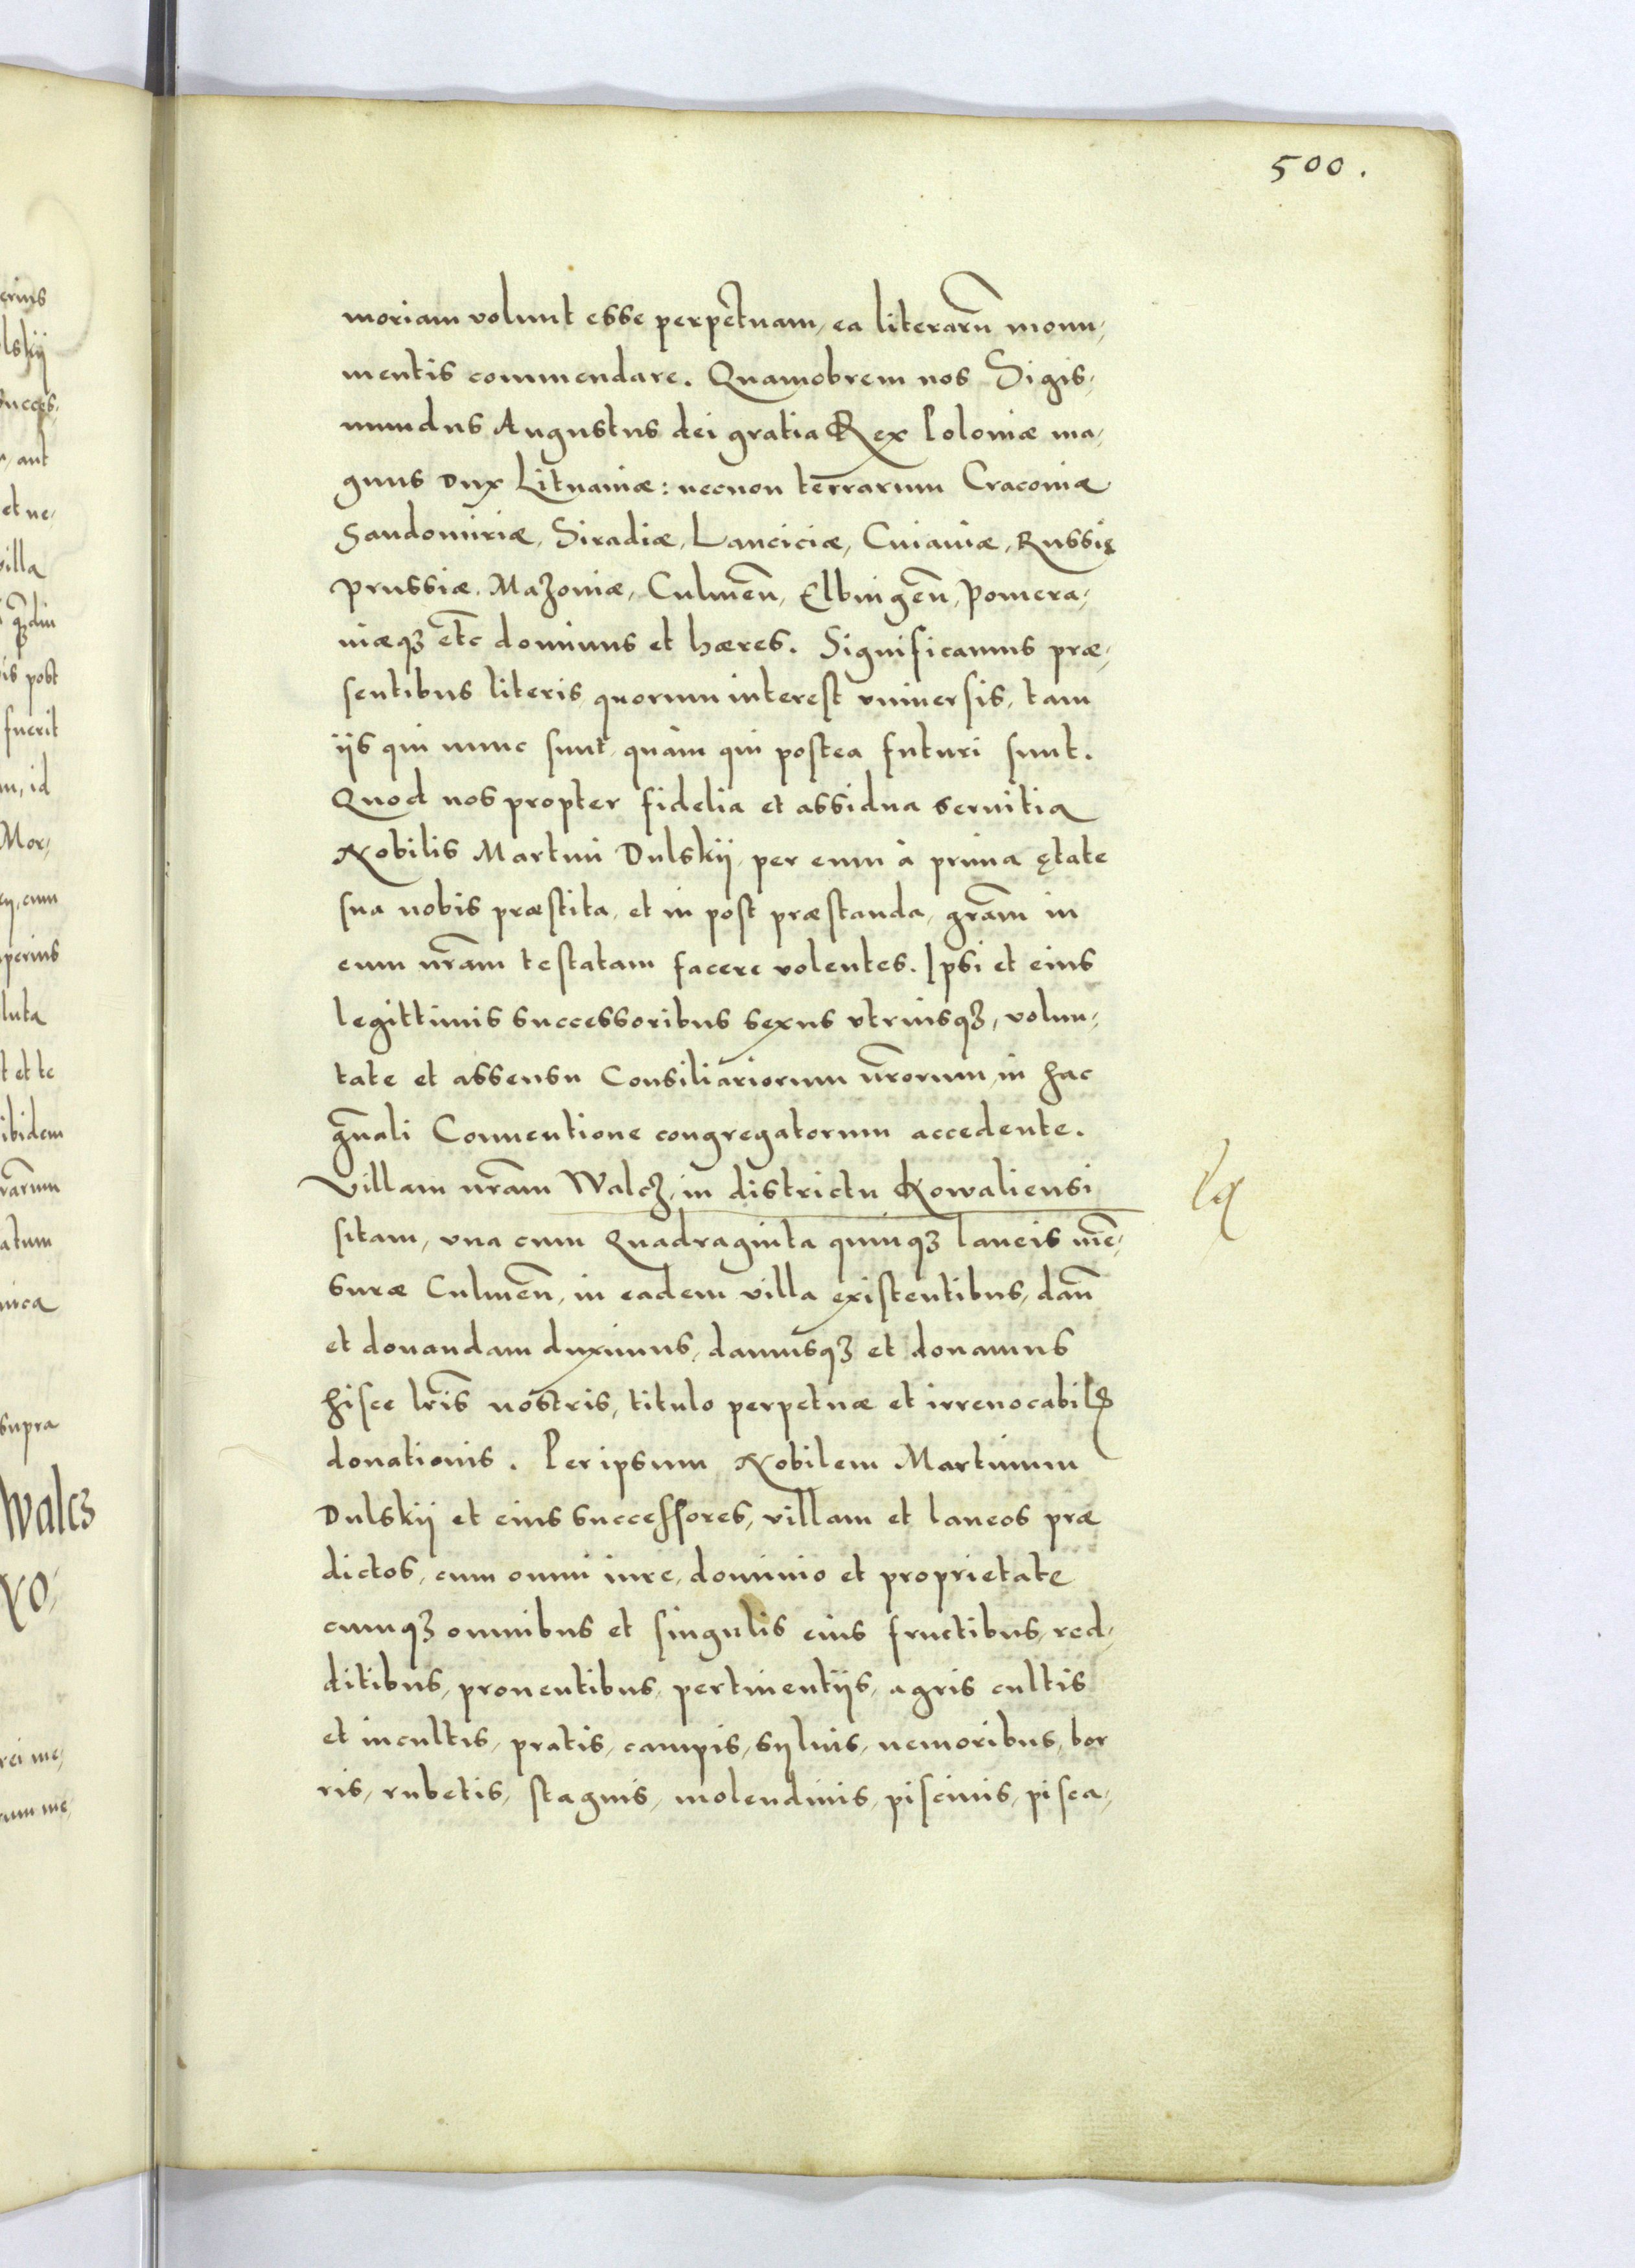 500.
moriam volunt esse perpetuam, ea literarũ monu,
mentis commendare. Quamobrem nos Sigis,
mundus Augustus dei gratia Rex Poloniæ ma,
gnus Dux Lituaniæ: necnon terrarum Cracoviæ
Sandomiriæ, Siradiæ, Lanciciæ, Cuiaviæ, Russię
Prussiæ, Mazoviæ, Culmeñ, Elbingeñ, Pomera,
niæqꝫ etc̃ dominus et hæres. Significamus præ,
sentibus literis quorum interest vniversis, tam
ijs qui nunc sunt, quàm qui postea futuri sunt.
Quod nos propter fidelia et assidua servitia
Nobilis Martini Dulskij, per eum à prima ętate
sua nobis præstita, et in post præstanda, gr̃am in
eum nr̃am testatam facere volentes. Ipsi et eius
legittimis successoribus sexus vtriusqꝫ, volun,
tate et assensu Consiliariorum nr̃orum, in hac
gñali Conuentione congregatorum accedente.
Villam nr̃am Walcz, in districtu Kowaliensi
sitam, vna cum Quadraginta quinqꝫ laneis mẽ,
suræ Culmeñ, in eadem villa existentibus, dañ
et donandam duximus, damusqꝫ et donamus
hisce lr̃is nostris, titulo perpetuæ et irreuocabilꝭ
donationis. Per ipsum Nobilem Martinum
Dulskij et eius successores, villam et laneos præ
dictos, cum omni iure, dominio et proprietate
cumqꝫ omnibus et singulis eius fructibus, red,
ditibus, prouentibus, pertinentijs, agris cultis
et incultis, pratis, campis, syluis, nemoribus, bor
ris, rubetis, stagnis, molendinis, piscinis, pisca,